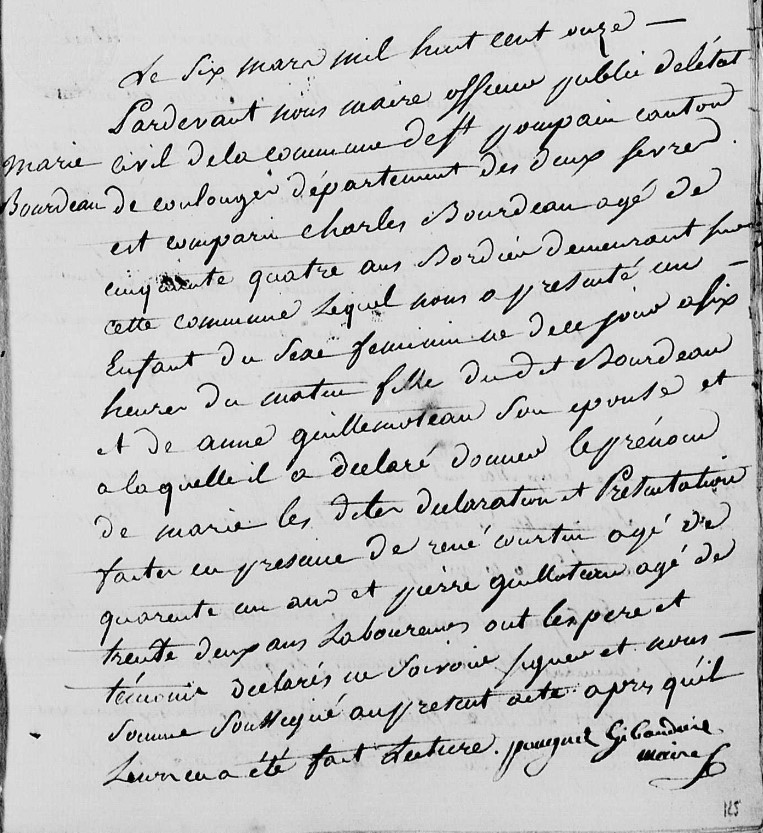 Le six mars mil huit cent onze —
Pardevant nous maire officier public deletat
Marie
Bourdeau
civil dela commune de st pompain canton
de coulonges département des deux sevres.
est comparu charles Bourdeau agé de
cinquente quatre ans Bordier demeurant
cette commune Lequel nous a presenté un —
Enfant du sexe feminin né dece jour a six
heures du matin fille dudit Bourdeau
et de anne guillemoteau son epouse et
a laquelle il a declaré donner le prénom
de marie les dites declaration et Présentation
faites en presence de rené courtin agé de
quarente un ans et pierre guilloteau agé de
trente deux ans Laboureurs ont les pere et
témoins declarés ne savoir signer et nous —
somme soussigné au present acte apres qu'il
Leur en a été fait Lecture.
maire
125